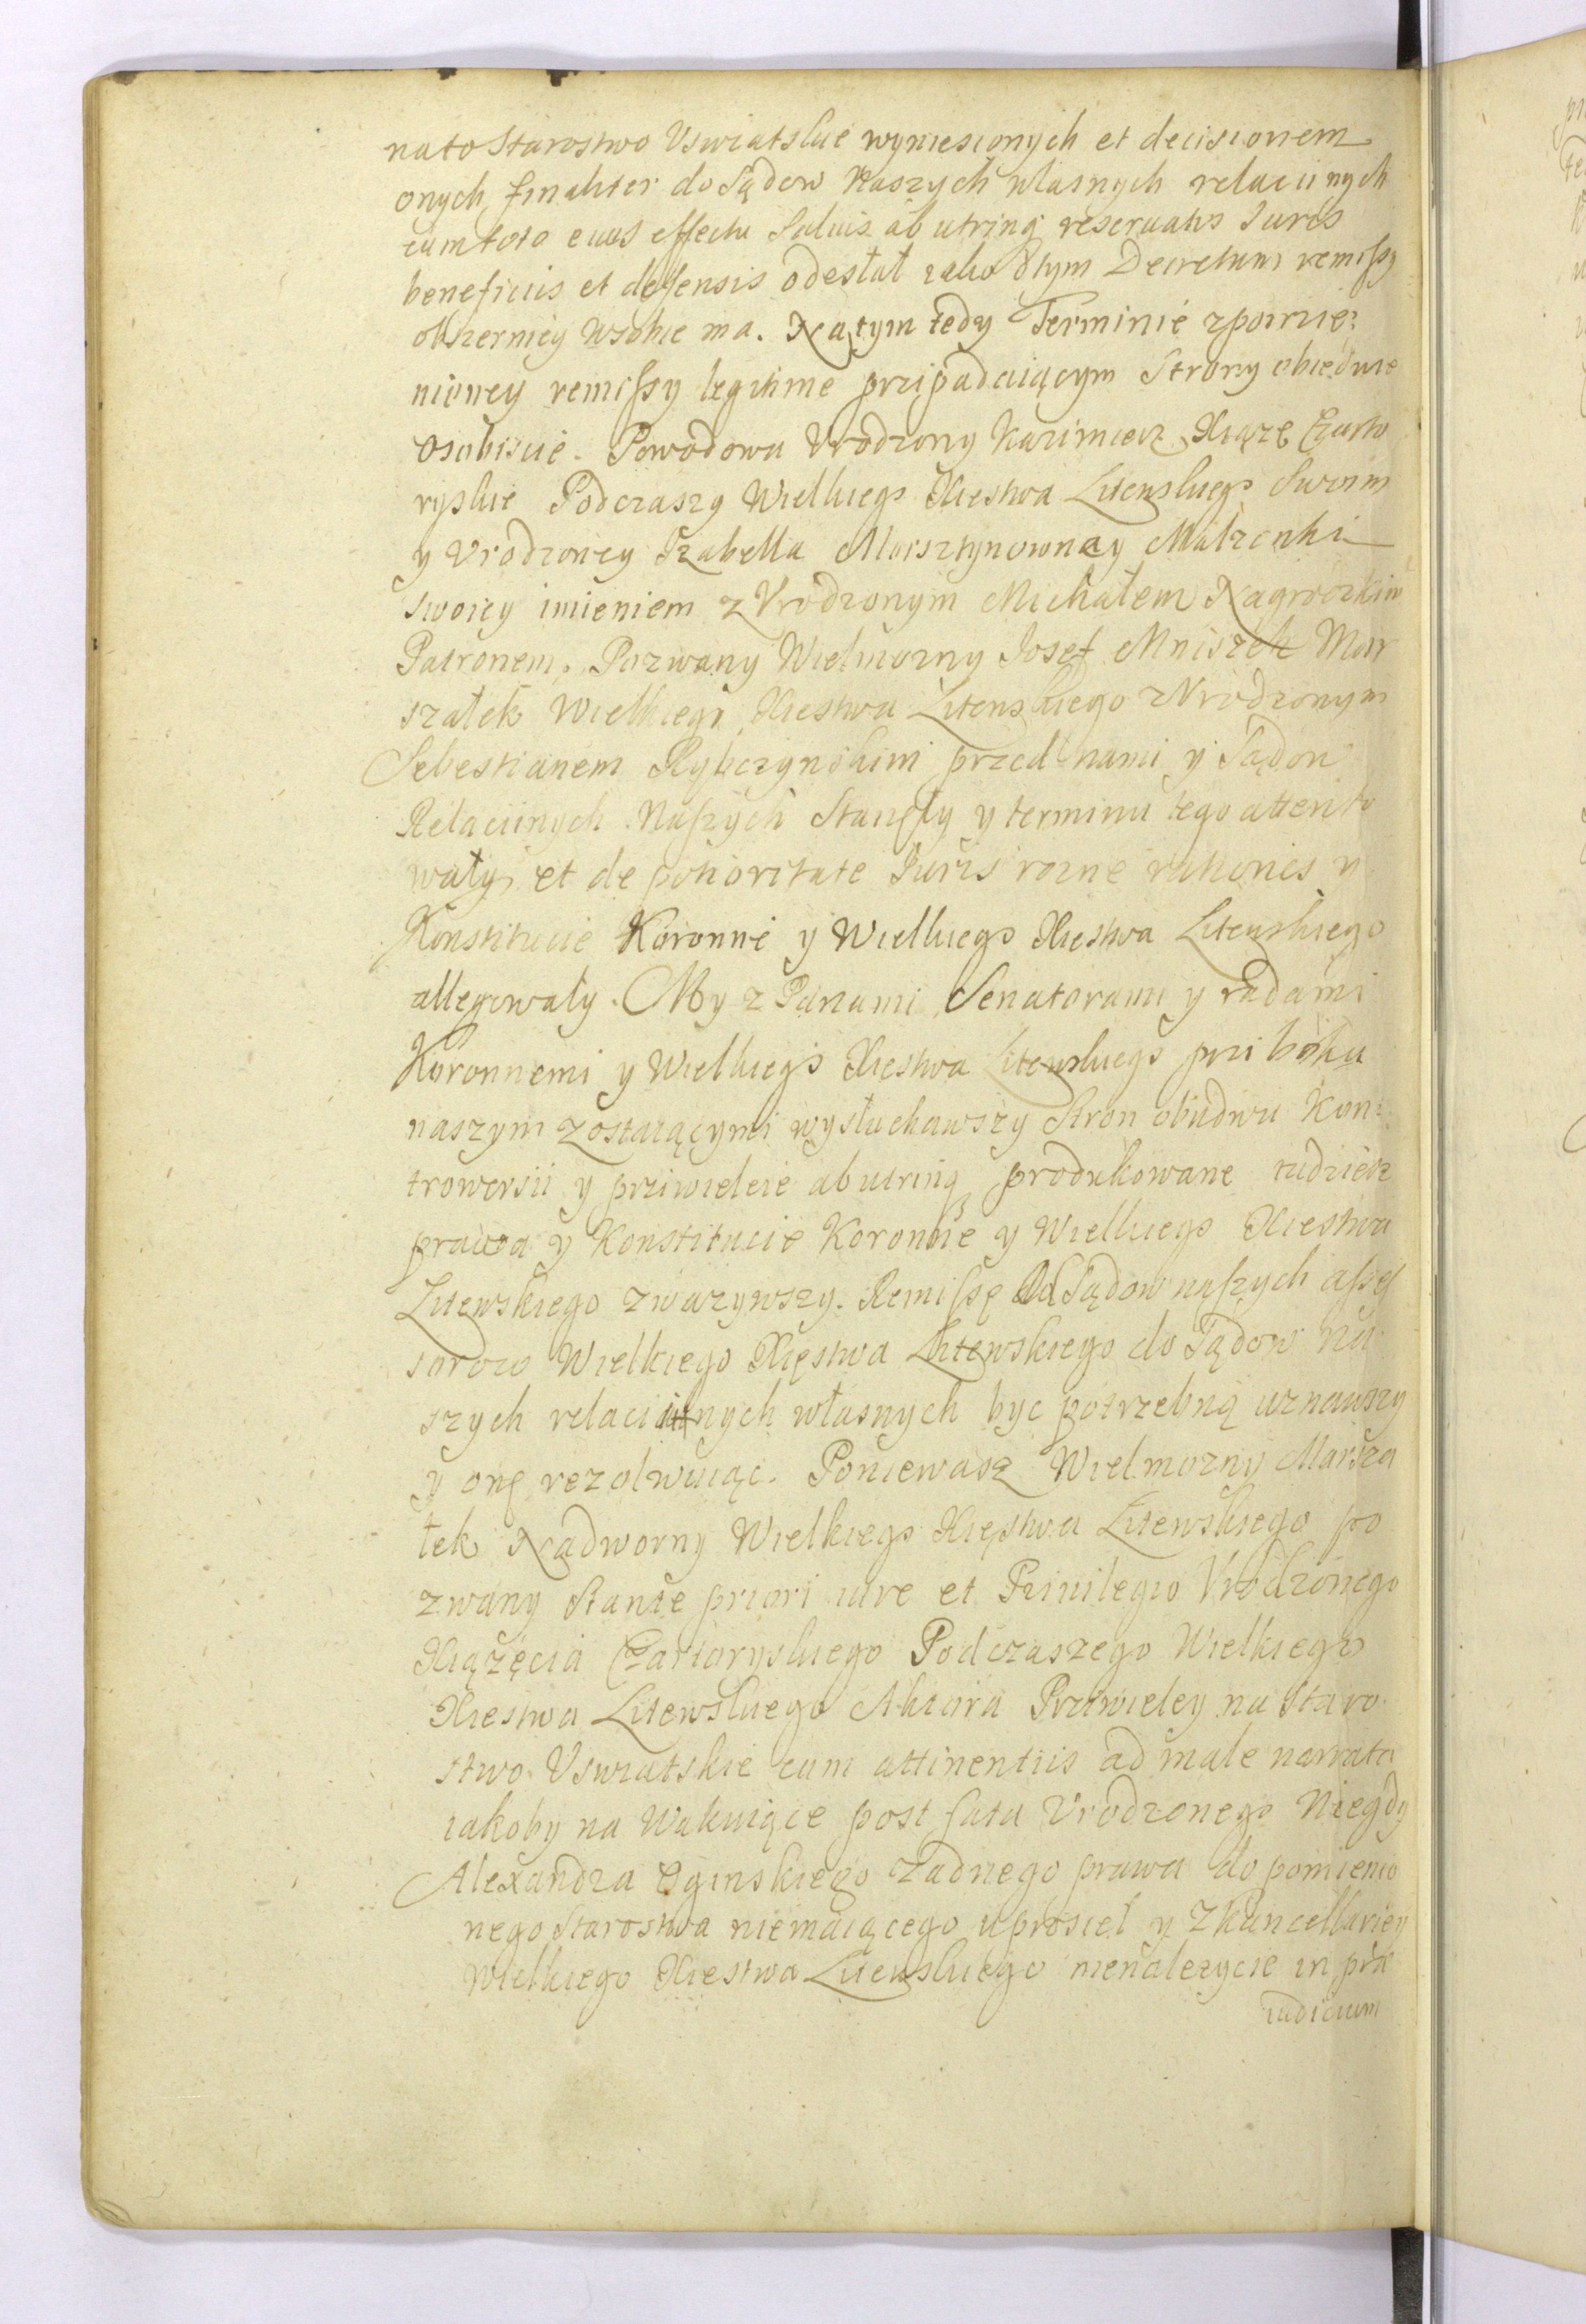 na to Starostwo Vswiatskie wyniesionych et decisionem
onych finaliter do Sądow Naszych własnych relaciinych
cum toto eius effectu Saluis ab utrinq reseruatis Iuris
beneficiis et defensis odesłał iako o tym Decretum remissy
obszerniey w sobie ma. Na tym tedy Terminie z pomie:
nioney remissy legitime przipadaiącym Strony obiedwie
osobiscie. Powodowa Vrodzony Kazimierz Xiąze Czarto
ryskie Podczaszy Wielkiego Xiestwa Litewskiego Swoim
y Vrodzoney Izabella Morsztynowna y Małzenki
swoiey imieniem z Vrodzonym Michałem Nagroczkim
Patronem. Pozwany Wielmozny Josef Mniszek Mar
szałek Wielkiego Xiestwa Litewskiego z Vrodzonym
Sebestianem Rybczynskim przed nami y Sądow
Relaciinych Naszych Staneły y terminu tego attento
wały et de potioritate Iuris rozne rationes y
Konstitucie Koronne y Wielkiego Xiestwa Litewskiego
allegowały. My z Panami Senatorami y radami
Koronnemi y Wielkiego Xiestwa Litewskiego przi boku
naszym zostaiącymi wysłuchawszy Stron obudwu Kon:
trowersii y priwileie ab utrinq produkowane tudziesz
prawa y Konstitucie Koronne y Wielkiego Xiestwa
Litewskiego zwazywszy. Remissę od Sądow naszych asses
sorow Wielkiego Xięstwa Litewskiego do Sądow na
szych relaciinych własnych byc potrzebną uznawszy
y onę rezolwuiąc. Poniewasz Wielmozny Marsza
łek Nadworny Wielkiego Xięstwa Litewskiego po
zwany Stante priori iure et Priuilegio Vrodzonego
Xiązęcia Czartoryskiego Podczaszego Wielkiego
Xiestwa Litewskiego Aktora Prziwieley na Staro
stwo Vswiatskie cum attinentiis ad male narrata
iakoby na Wakuiące post fata Vrodzonego Niegdy
Alexandra Oginskiego zadnego prawa do pomienio
nego Starostwa niemaiącego uprosieł y z Kancellariey
Wielkiego Xiestwa Litewskiego nienalezycie in prae
iudicium